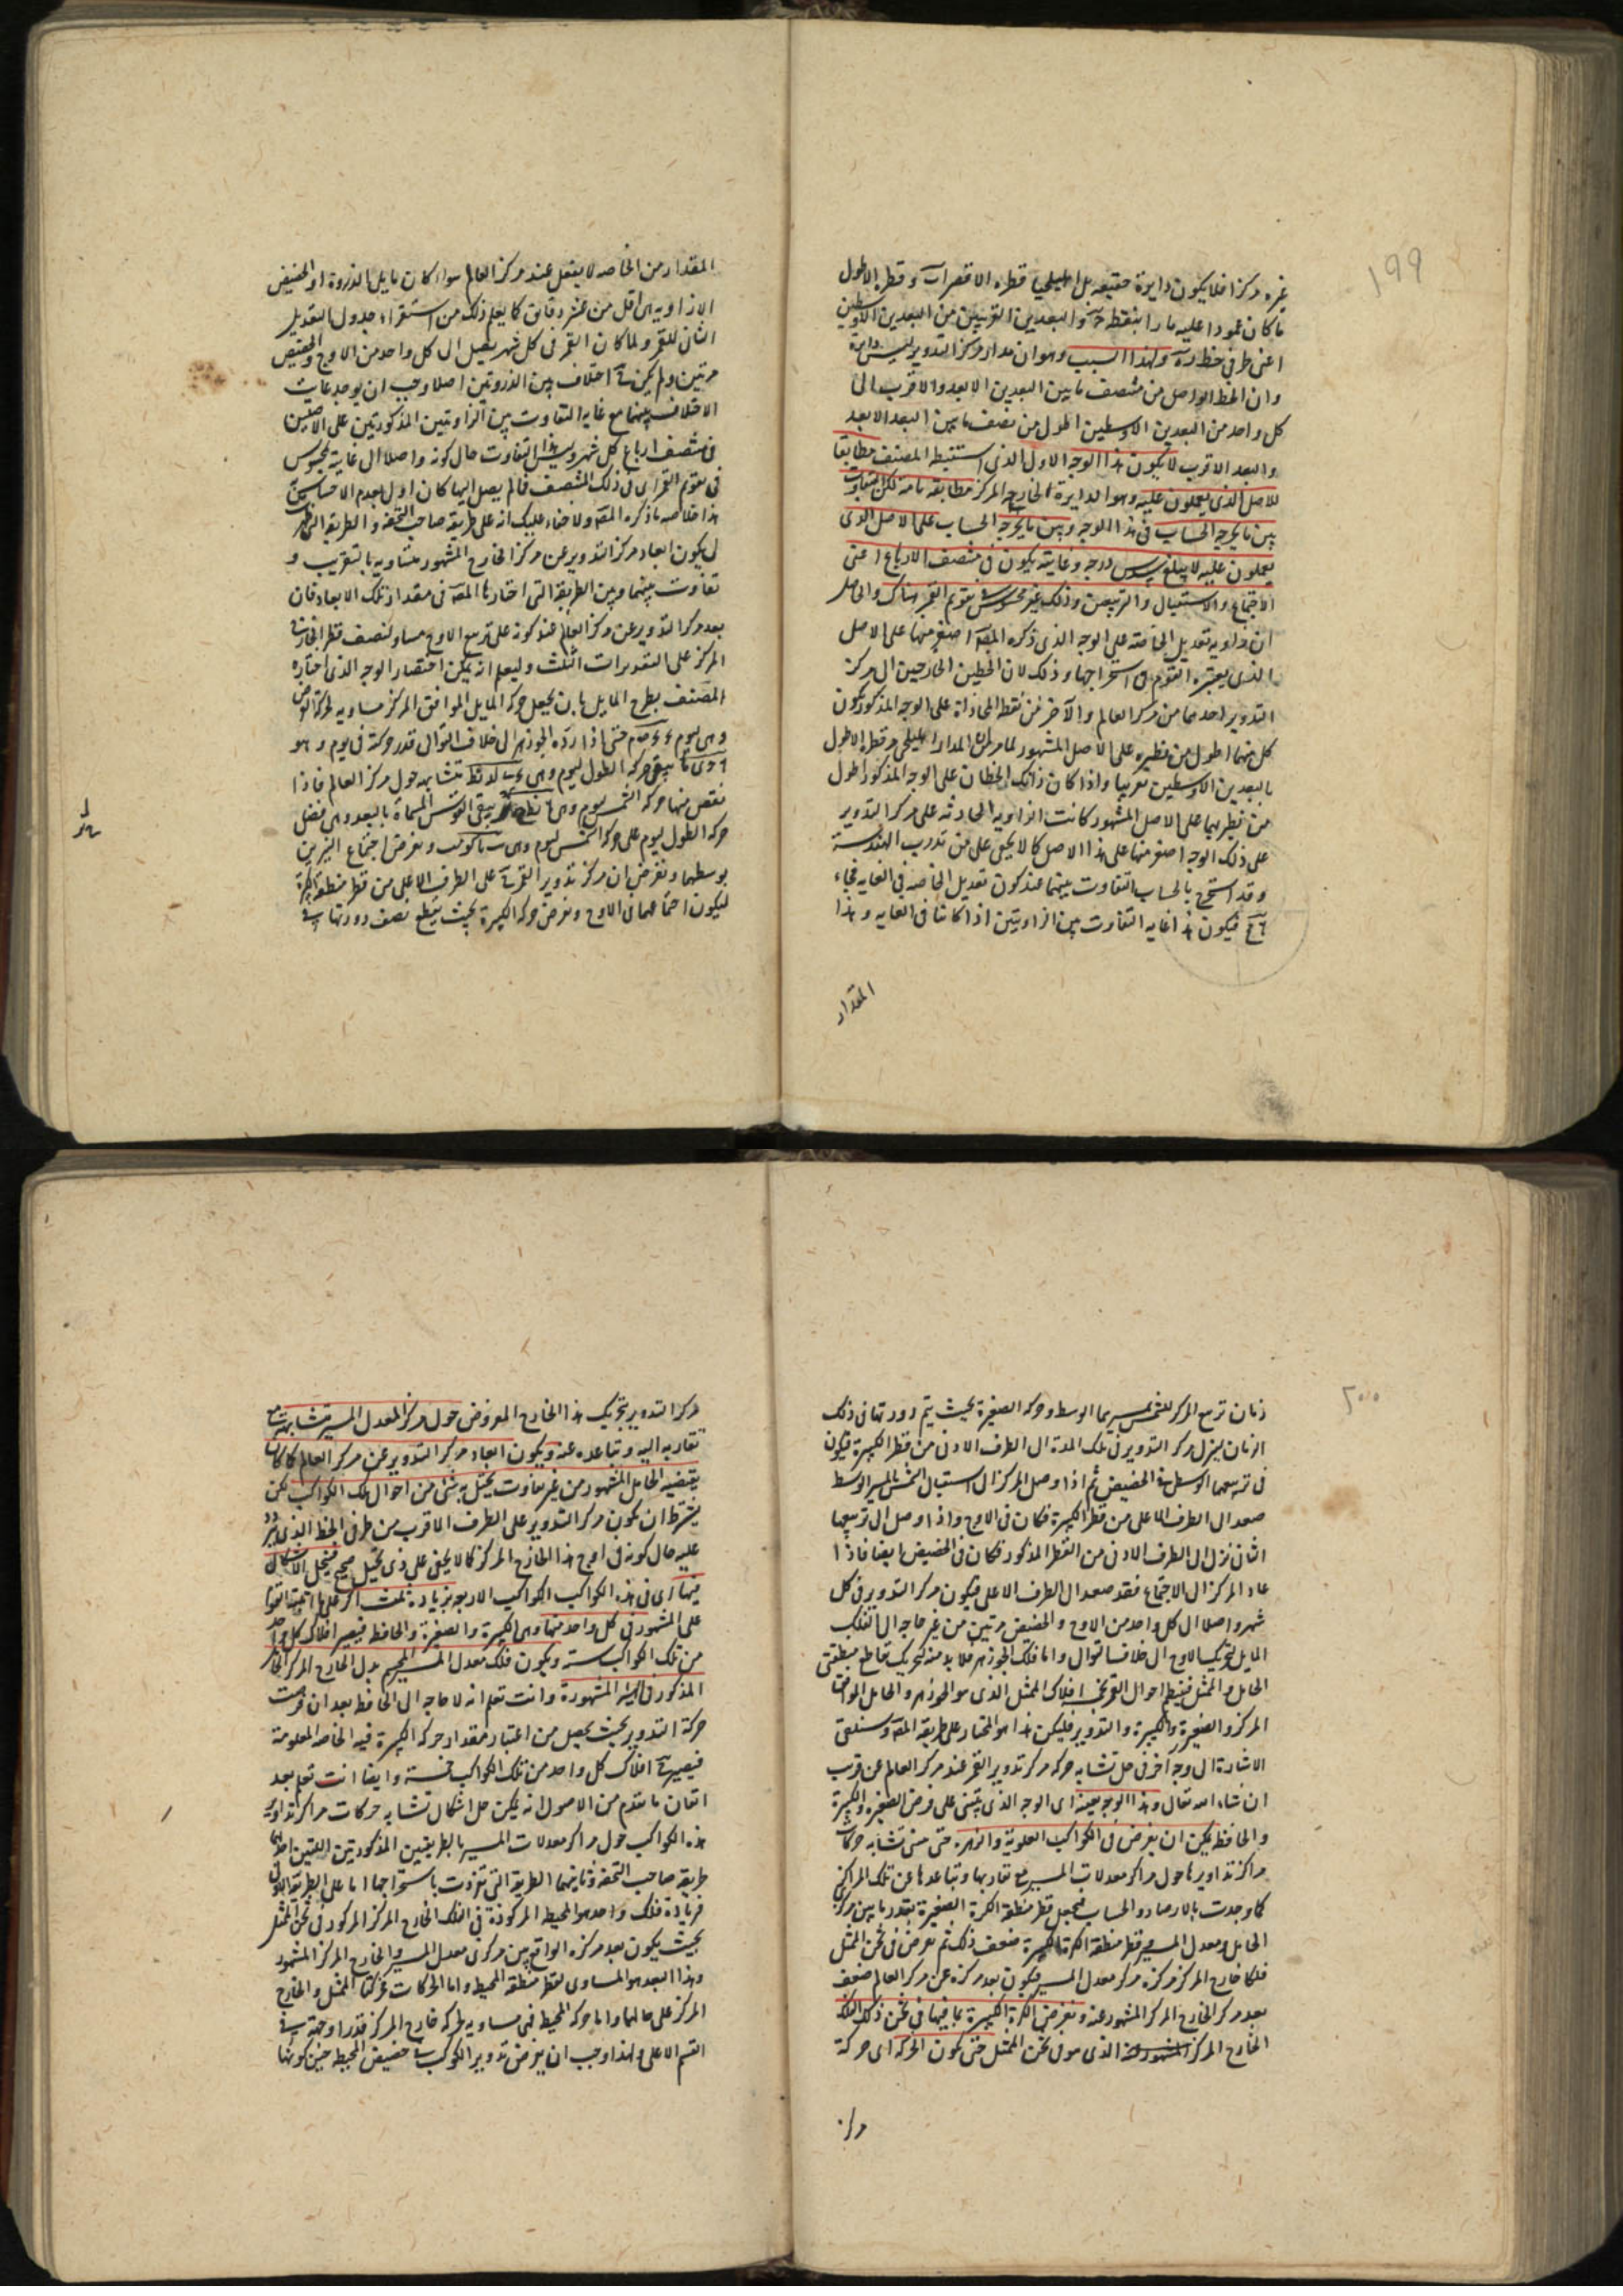 ١٩٩
غيره مركزا فلا يكون دايرة حقيقه بل اهليلجيا قطره الاقصر اب و قطره الاطول
ما كان عمودا عليه مارا بنقطة والبعدين القريبين من البعدين الاوسطين
اعنى طرفى خط ده ولهذا السبب وهو ان مدار مركز التدوير ليس دايرة
وان الخط الواصل من منتصف ما بين البعدين الابعد والاقرب الى
كل واحد من البعدين الاوسطين اطول من نصف ما بين البعد الابعد
والبعد الاقرب لا يكون هذا الوجه الاول الذى استنبطه المصنف مطابقا
للاصل الذى يعملون عليه وهو الدايرة الخارجة المركز مطابقه تامه لكن التفاوت
بين ما يخرجه الحساب فى هذا الوجه وبين ما يخرجه الحساب على الاصل الذى
يعملون عليه لا يبلغ سدس درجه وغايته يكون فى منتصف الارباع اعنى
الاجتماع والاستقبال والتربيعين وذلك غير محسوس فى تقويم القمر هناك والحاصل
ان زاويه تعديل الخاصه على الوجه الذى ذكره المصنف اصغر منها على الاصل
الذى يعتبره القوم فى استخراجها وذلك لان الخطين الخارجين الى مركز
التدوير احدهما من مركز العالم والآخر من نقطة المحاذاة على الوجه المذكور يكون
كل منهما اطول من نظيره على الاصل المشهور لما مر ان المدار اهليلجى مر قطره الاطول
بالبعدين الاوسطين تقريبا واذا كان ذانك الخطان على الوجه المذكور اطول
من نظيريهما على الاصل المشهور كانت الزاويه الحادثه على مركز التدوير
على ذلك الوجه اصغر منها على هذا الاصل كما لا يخفى على من تدرب الهندسة
وقد استخرج بالحساب التفاوت بينهما عند كون تعديل الخاصه فى الغايه فجاء
فيكون هذا غايه التفاوت بين الزاويتين اذا كانتا فى الغايه وهذا
المقدار
المقدار من الخاصه لا يفعل عند مركز العالم سواء كان مايلى الذروة او الحضيض
الا زاويه هى اقل من عشر دقائق كما يعلم ذلك من استقراء جدول التعديل
الثانى للقمر ولما كان القمر فى كل شهر يصل الى كل واحد من الاوج والحضيض
مرتين ولم يكن اختلاف بين الذروتين اصلا وجب ان يوجد غايت
الاختلاف بينهما مع غايه التفاوت بين الزاويتين المذكورتين على الاصلين
فى منتصف ارباع كل شهر وليس هذا التفاوت حال كونه واصلا الى غايته بمحسوس
فى تقويم القمر اى فى ذلك المنتصف فما لم يصل اليها كان اولى بعدم الاحساس
هذا خلاصه ما ذكره المصنف ولا خفاء عليك انه على طريقه صاحب التحفه والطريقه التى
لى يكون ابعاد مركز التدوير عن مركز الخارج المشهور متساويه بالتقريب و
تفاوت بينهما وبين الطريقه التى اختارها المصنف فى مقدار تلك الابعاد فان
بعد مركز التدوير عن مركز العالم عند كونه على تربيع الاوج مساو لنصف قطر الخارج
المركز على التقديرات الثلث وليعلم انه يمكن اختصار الوجه الذى اختاره
المصنف بطرح المايل بان يجعل حركه المايل الموافق المركز مساويه لحركة
وهى ليوم حتى اذا رده الجوزهر الى خلاف التوالى قدر حركته فى يوم وهو
يبقى حركه الطول ليوم وهى تشابه حول مركز العالم فاذا
نقص منها حركه الشمس ليوم وهى يبقى القوس المسماة بالبعد وهى فضل
حركه الطول ليوم على حركه الشمس ليوم وهى ونفرض اجتماع النيرين
بوسطهما ونفرض ان مركز تدوير القمر على الطرف الاعلى من قطر منطقة
ليكون اجتماعهما فى الاوج ونفرض حركه الكبيرة بحيث يقطع نصف دورتها فى
٢٠٠
زمان تربيع المركز للشمس بسيرها الوسط وحركه الصغيرة بحيث يتم دورتها فى ذلك
الزمان ينزل مركز التدوير فى تلك المدة الى الطرف الادنى من قطر الكبيرة فيكون
فى تربيعهما الوسط فى الحضيض ثم اذا وصل المركز الى استقبال الشمس بالسير الوسط
صعد الى الطرف الاعلى من قطر الكبيرة فكان فى الاوج واذا وصل الى تربيعهما
الثانى نزل الى الطرف الادنى من القطر المذكور فكان فى الحضيض ايضا فاذا
عاد المركز الى الاجتماع فقد صعد الى الطرف الاعلى فيكون مركز التدوير فى كل
شهر واصلا الى كل واحد من الاوج والحضيض مرتين من غير حاجه الى الفلك
المايل لتحريك الاوج الى خلاف التوالى واما فلك الجوزهر فلا بد منه لتحريك تقاطع منطقتى
الحامل والممثل فينتظم احوال القمر بخمسة افلاك الممثل الذى هو الجوزهر والحامل الموافق
المركز والصغيرة والكبيرة والتدوير فليكن هذا هو المختار على طريقه المصنف وستلقى
الاشارة الى وجه آخر فى حل تشابه حركه مركز تدوير القمر عند مركز العالم عن قرب
ان شاء الله تعالى وهذا الوجه بعينه اى الوجه الذى يبتنى على فرض الصغيره والكبيرة
والحافظ يمكن ان يفرض فى الكواكب العلوية والزهره حتى يبنى تشابه حركات
مراكز تداويرها حول مراكز معدلات المسير مع تقاربها وتباعدها عن تلك المراكز
كما وجدت بالارصاد والحساب فيجعل قطر منطقة الكرة الصغيرة بقدر ما بين مركزى
الحامل ومعدل المسير وقطر منطقة الكرة الكبيرة ضعف ذلك ثم يفرض فى ثخن الممثل
فلكا خارج المركز مركزه مركز معدل المسير فيكون بعد مركزه عن مركز العالم ضعف
بعد مركز الخارج المركز المشهور عنه ونفرض الكرة الكبيرة بما فيها فى ثخن ذلك الفلك
الخارج المركز الذى هو فى ثخن الممثل حتى يكون الحركه اى حركة
مركز
مركز التدوير بتحريك هذا الخارج المفروض حول مركز المعدل المسير متشابهة مع
تقاربه اليه وتباعده عنه ويكون ابعاد مركز التدوير عن مركز العالم كما كانت
يقتضيه الحامل المشهور من غير تفاوت يختل به شئ من احوال تلك الكواكب لكن
يشترط ان يكون مركز التدوير على الطرف الاقرب من طرفى الخط الذى يتردد
عليه حال كونه فى اوج هذا الخارج المركز كما لا يخفى على ذى تخيل صحيح فينحل الاشكال
فيها اى فى هذه الكواكب الاربعه بزيادة ثلث اكر على ما اثبته القوم
على المشهور فى كل واحد منها وهى الكبيرة والصغيرة والحافظ فيصير افلاك كل واحد
من تلك الكواكب سته ويكون فلك معدل المسير المجسم بدل الخارج المركز
المذكور فى الهيئه المشهورة وانت تعلم انه لا حاجه الى الحافظ بعد ان فرضت
حركة التدوير بحيث يحصل من اعتبار مقدار حركه الكبيرة فيه الخاصه المعلومة
فيصير افلاك كل واحد من تلك الكواكب خمسة وايضا انت تعلم بعد
اتقان ما تقدم من الاصول انه يمكن حل اشكال تشابه حركات مراكز تداوير
هذه الكواكب حول مراكز معدلات المسير بالطريقتين المذكورتين اللتين احداهما
طريقه صاحب التحفه وثانيهما الطريقه التى تفردت باستخراجها اما على الطريقه الاولى
فزيادة فلك واحد هو المحيط المركوزة فى الفلك الخارج المركز المركوز فى ثخن الممثل
بحيث يكون بعد مركزه الواقع بين مركزى معدل المسير والخارج المركز المشهور
وهذا البعد هو المساوى لقطر منطقة المحيط واما الحركات فحركتا الممثل والخارج
المركز على حالهما واما حركه المحيط فهى مساويه لحركه خارج المركز قدرا وجهة فى
القسم الاعلى ولهذا وجب ان يفرض تدوير الكوكب فى حضيض المحيط حين كونها